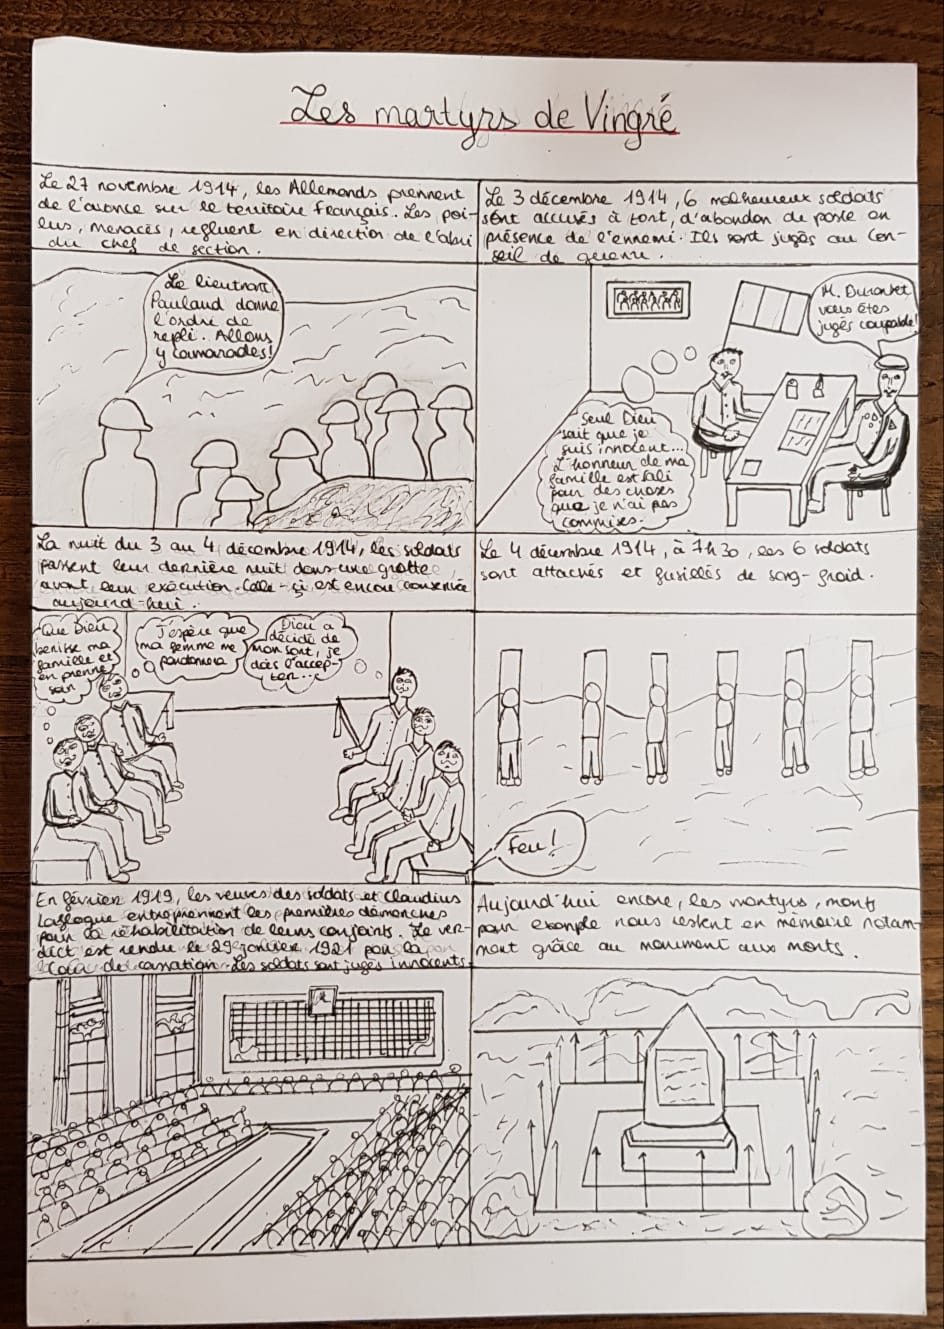 Les martyrs de Vingré
Le 27 novembre 1914, les Allemands prennent
de l'avance sur le territoire français. Les poi-
lus, menacés, refluent en direction de l'abri
du chef de section.
Le lieutnant
Paulaud donne
l'ordre de
repli. Allons
y camarades!
Le 3 décembre 1914, 6 malheureux soldats
sont accusés à tort, d'abandon de poste en
présence de l'ennemi. Ils sont jugés au Con-
seil de guerre.
M. Durantet
vous êtes
jugés coupable!
Seul Dieu
sait que je
suis innocent...
L'honneur de ma
famille est sali
pour des choses
que je n'ai pas
commises.
La nuit du 3 au 4 décembre 1914, les soldats
passent leur dernière nuit dans une grotte,
avant leur exécution. Celle-ci est encore conservée
aujourd'hui.
Que Dieu
bénisse ma
famille et
en prenne
soin
J'espère que
ma femme me
pardonnera
Dieu a
décidé de
mon sort, je
dois l'accep-
ter...
Le 4 décembre 1914, à 7h30, les 6 soldats
sont attachés et fusillés de sang-froid.
Feu!
En février 1919, les veuves des soldats et Claudius
Lafloque entreprennent les premières démarches
pour la réhabilitation de leurs conjoints. Le ver-
dict est rendu le 29 janvier 1921 par la
Cour de cassation. Les soldats sont jugés innocents.
Aujourd'hui encore, les martyrs, morts
pour exemple nous restent en mémoire notam-
ment grâce au monument aux morts.